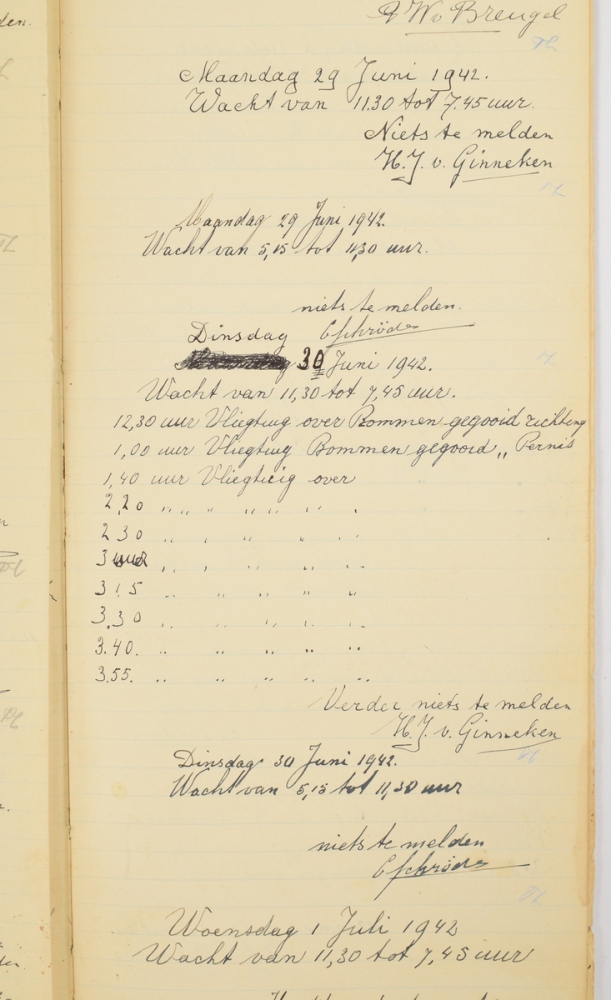 W v Breugel
Maandag 29 Juni 1942.
Wacht van 11.30 tot 7.45 uur.
Niets te melden
H.J. v. Ginneken
Maandag 29 Juni 1942.
Wacht van 5,15 tot 11,30 uur.
niets te melden.
Dinsdag CSchröder
30 Juni 1942.
Wacht van 11,30 tot 7,45 uur.
12,30 uur Vliegtuig over Bommen gegooid richting
1,00 uur Vliegtuig Bommen gegooid ,, Pernis
1,40 uur Vliegtuig over
2,20 ,, ,, ,, ,, ,,
2 30 ,, ,, ,, ,, ,,
3 uur ,, ,, ,, ,, ,,
3 1.5 ,, ,, ,, ,, ,,
3.30 ,, ,, ,, ,, ,,
3.40. ,, ,, ,, ,, ,,
3.55. ,, ,, ,, ,, ,,
Verder niets te melden
H.J. v. Ginneken
Dinsdag 30 Juni 1942.
Wacht van 5,15 tot 11,30 uur
niets te melden
CSchröder
Woensdag 1 Juli 1942
Wacht van 11,30 tot 7,45 uur